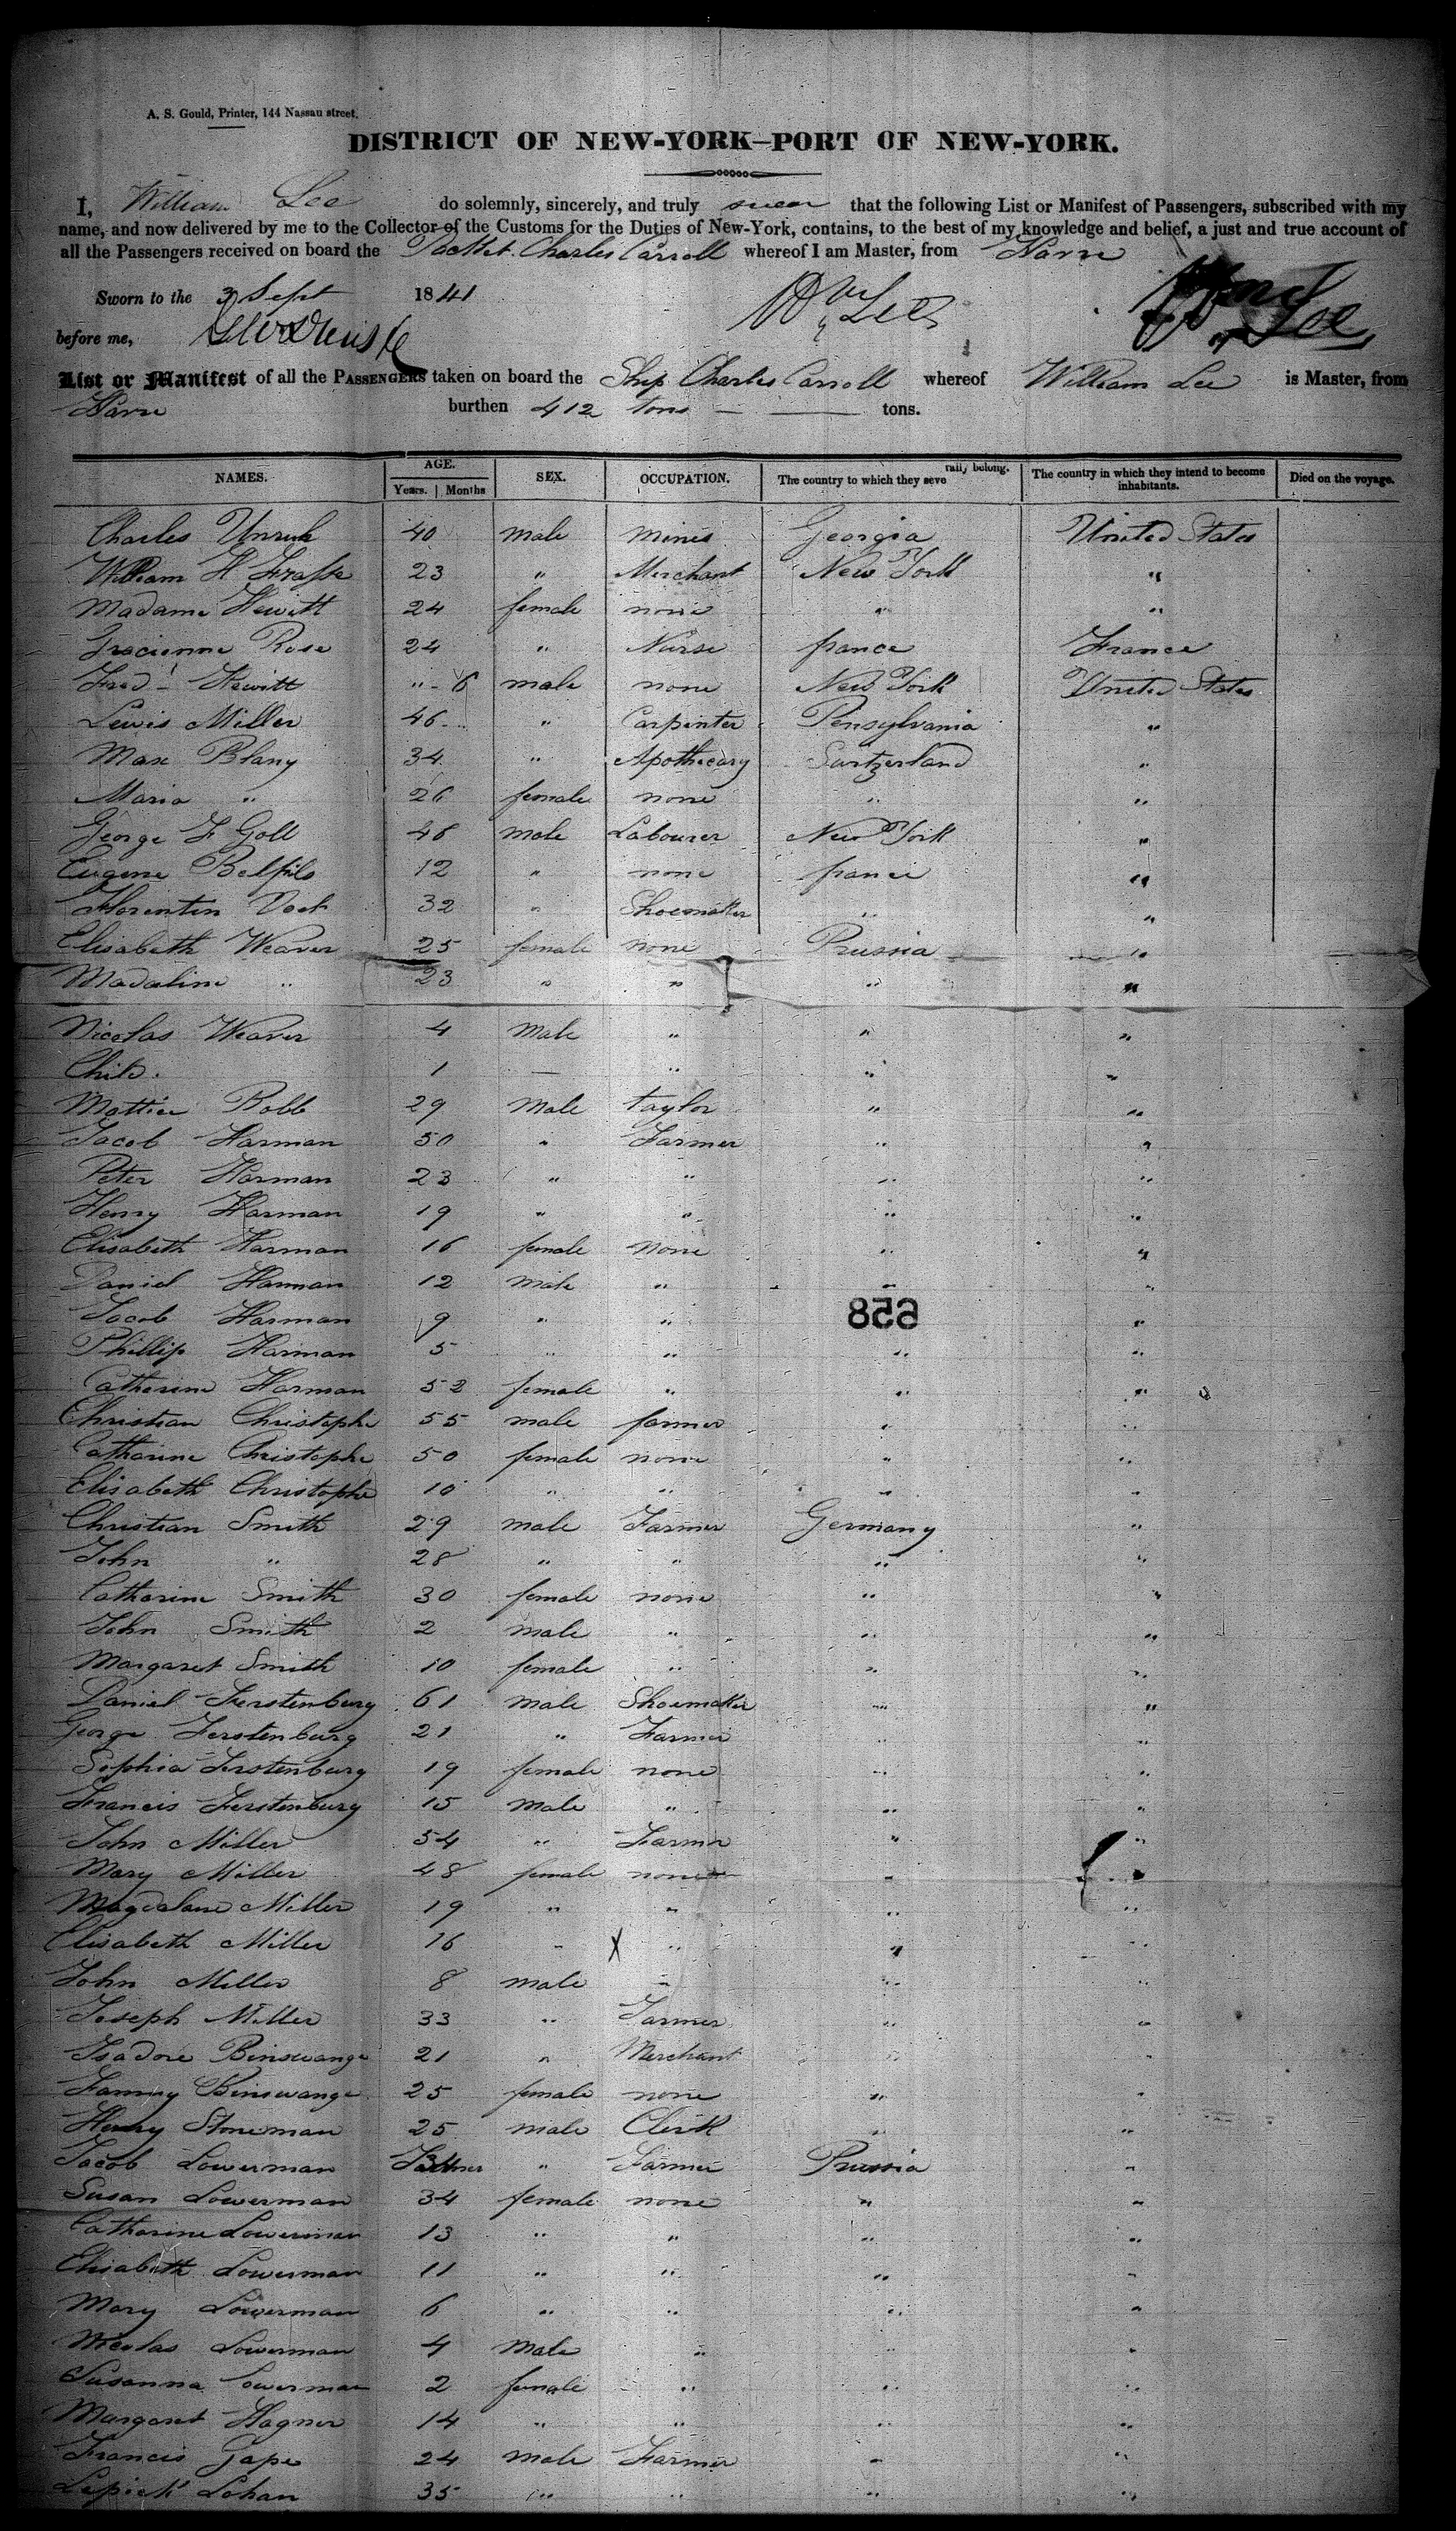 A. S. Gould, Printer, 144 Nassau street.
DISTRICT OF NEW-YORK—PORT OF NEW-YORK.
I, William Lee do solemnly, sincerely, and truly swear that the following List or Manifest of Passengers, subscribed with my
name, and now delivered by me to the Collector of the Customs for the Duties of New-York, contains, to the best of my knowledge and belief, a just and true account of
all the Passengers received on board the Packet Charles Carroll whereof I am Master, from Havre
Sworn to the 3 Sept 1841 Wm Lee
before me, Lee
List or Manifest of all the PASSENGERS taken on board the Ship Charles Carroll whereof William Lee is Master, from
Havre burthen 412 tons — — tons.
NAMES. AGE. Years. Months SEX. OCCUPATION. The country to which they seve rally belong. The country in which they intend to become inhabitants. Died on the voyage.
Charles Unruh 40 male Georgia United States
William H 23 " Merchant New York "
Madame Hewitt 24 female none " "
Gracienne Rose 24 " Nurse france France
Fred Hewitt "- 6 male none New York United States
Lewis Miller 46 " Carpinter Pensylvania "
Max Blany 34 " Apothecary "
Maria " 26 female none " "
George F Goll 48 male Labourer New York "
Eugene Belfils 12 " none france "
Florentin 32 " Shoemaker " "
Elisabeth Weaver 25 female none Prussia "
Madaline " 23 " " " "
Nicolas Weaver 4 male " " "
Child. 1 — " " "
Mattice Robb 29 male taylor " "
Jacob Harman 50 " Farmer " "
Peter Harman 23 " " " "
Henry Harman 19 " " " "
Elisabeth Harman 16 female none " "
Daniel Harman 12 male " " "
Jacob Harman 9 " " " "
658
Phillip Harman 5 " " " "
Catherine Harman 52 female " " "
Christian Christophe 55 male farmer " "
Catharine Christophe 50 female none " "
Elisabeth Christophe 10 " " " "
Christian Smith 29 male Farmer Germany "
John " 28 " " " "
Catharine Smith 30 female none " "
John Smith 2 male " " "
Margaret Smith 10 female " " "
Daniel Ferstenburg 61 male Shoemaker " "
George Ferstenburg 21 " Farmer " "
Sophia Ferstenburg 19 female none " "
Francis Ferstenburg 15 male " " "
John Miller 54 " Farmer " "
Mary Miller 48 female none " "
Magdalane Miller 19 " " " "
Elisabeth Miller 16 " X " " "
John Miller 8 male " " "
Joseph Miller 33 " Farmer " "
Isadore Binswange 21 " Merchant " "
Fanny Binswange 25 female none " "
Henry Stoneman 25 male Clerk " "
Jacob Lowerman " Farmer Prussia "
Susan Lowerman 34 female none " "
Catharine Lowerman 13 " " " "
Elisabeth Lowerman 11 " " " "
Mary Lowerman 6 " " " "
Nicolas Lowerman 4 male " " "
Susanna Lowerman 2 female " " "
Margaret Hagner 14 " " " "
Francis Gape 24 male Farmer " "
Lohan 35 " " " "